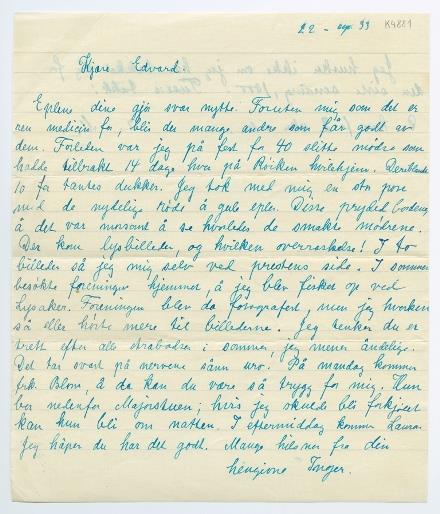 22 - sep. 33 K4881
Kjære Edvard.
Eplene dine gjør svar nytte. Foruten mig som det er
ren medicin for, blir du mange andre som får godt av
dem. Forleden var jeg på fest for 40 slitte mødre som
hadde tilbrakt 14 dage hver på Røiken hvilehjem. Deriblandt
10 fra tantes dukker. Jeg tok med mig en stor pose
med de nydelige røde å gule epler. Disse prydet bordene
å det var morsomt å se hvorledes de smakte mødrene.
Der kom lysbilleder, og hvilken overraskelse! I to
billeder så jeg mig selv ved prestens side. I sommer
besøkte foreningen hjemmet, å jeg blev fisket op ved
Lysaker. Foreningen blev da fotografert, men jeg hverken
så eller hørte mere til billederne. Jeg tenker du er
trett efter alle strabadser i sommer, jeg mener åndelige.
Det tar svært på nervene sånn uro. På mandag kommer
frk. Blom, å da kan du være så trygg for mig. Hun
bor nedenfor Majorstuen; hvis jeg skulde bli forkjølet
kan hun bli om natten. I eftermiddag kommer Laura.
Jeg håper du har det godt. Mange hilsner fra din
hengivne Inger.